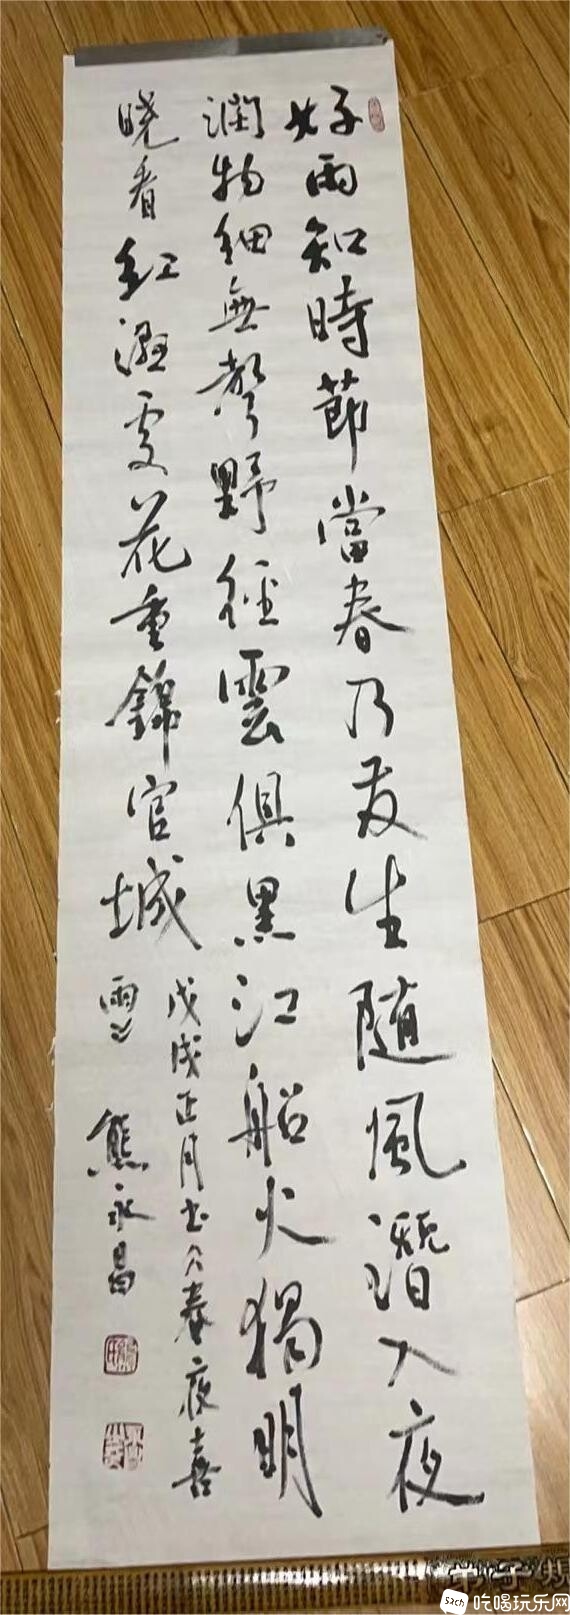 好雨知時節當春乃發生随風潛入夜
潤物细無聲野徑雲俱黑江船火獨明
晓看红濕处花重錦官城
戊戌正月书八春夜喜
雨〃
熊永昌
吃喝玩乐网